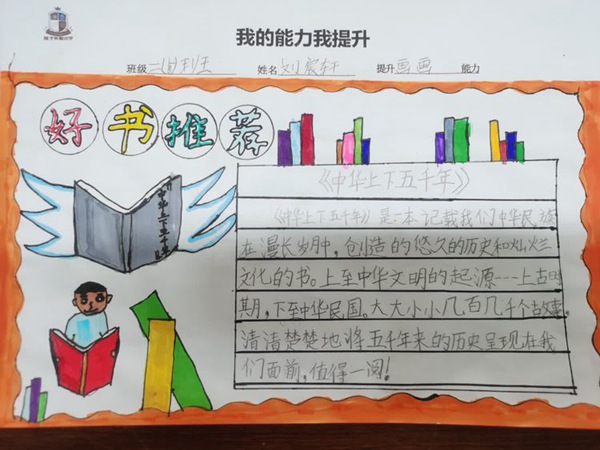 我的能力我提升
班级 二(四)班 姓名 刘宸轩 提升 画画 能力
好书推荐
中华上下五千年
《中华上下五千年》
《中华上下五千年》是一本记载我们中华民族
在漫长岁月中,创造的悠久的历史和灿烂
文化的书。上至中华文明的起源---上古时
期,下至中华民国。大大小小几百几千个故事,
清清楚楚地将五千年来的历史呈现在我
们面前,值得一阅!